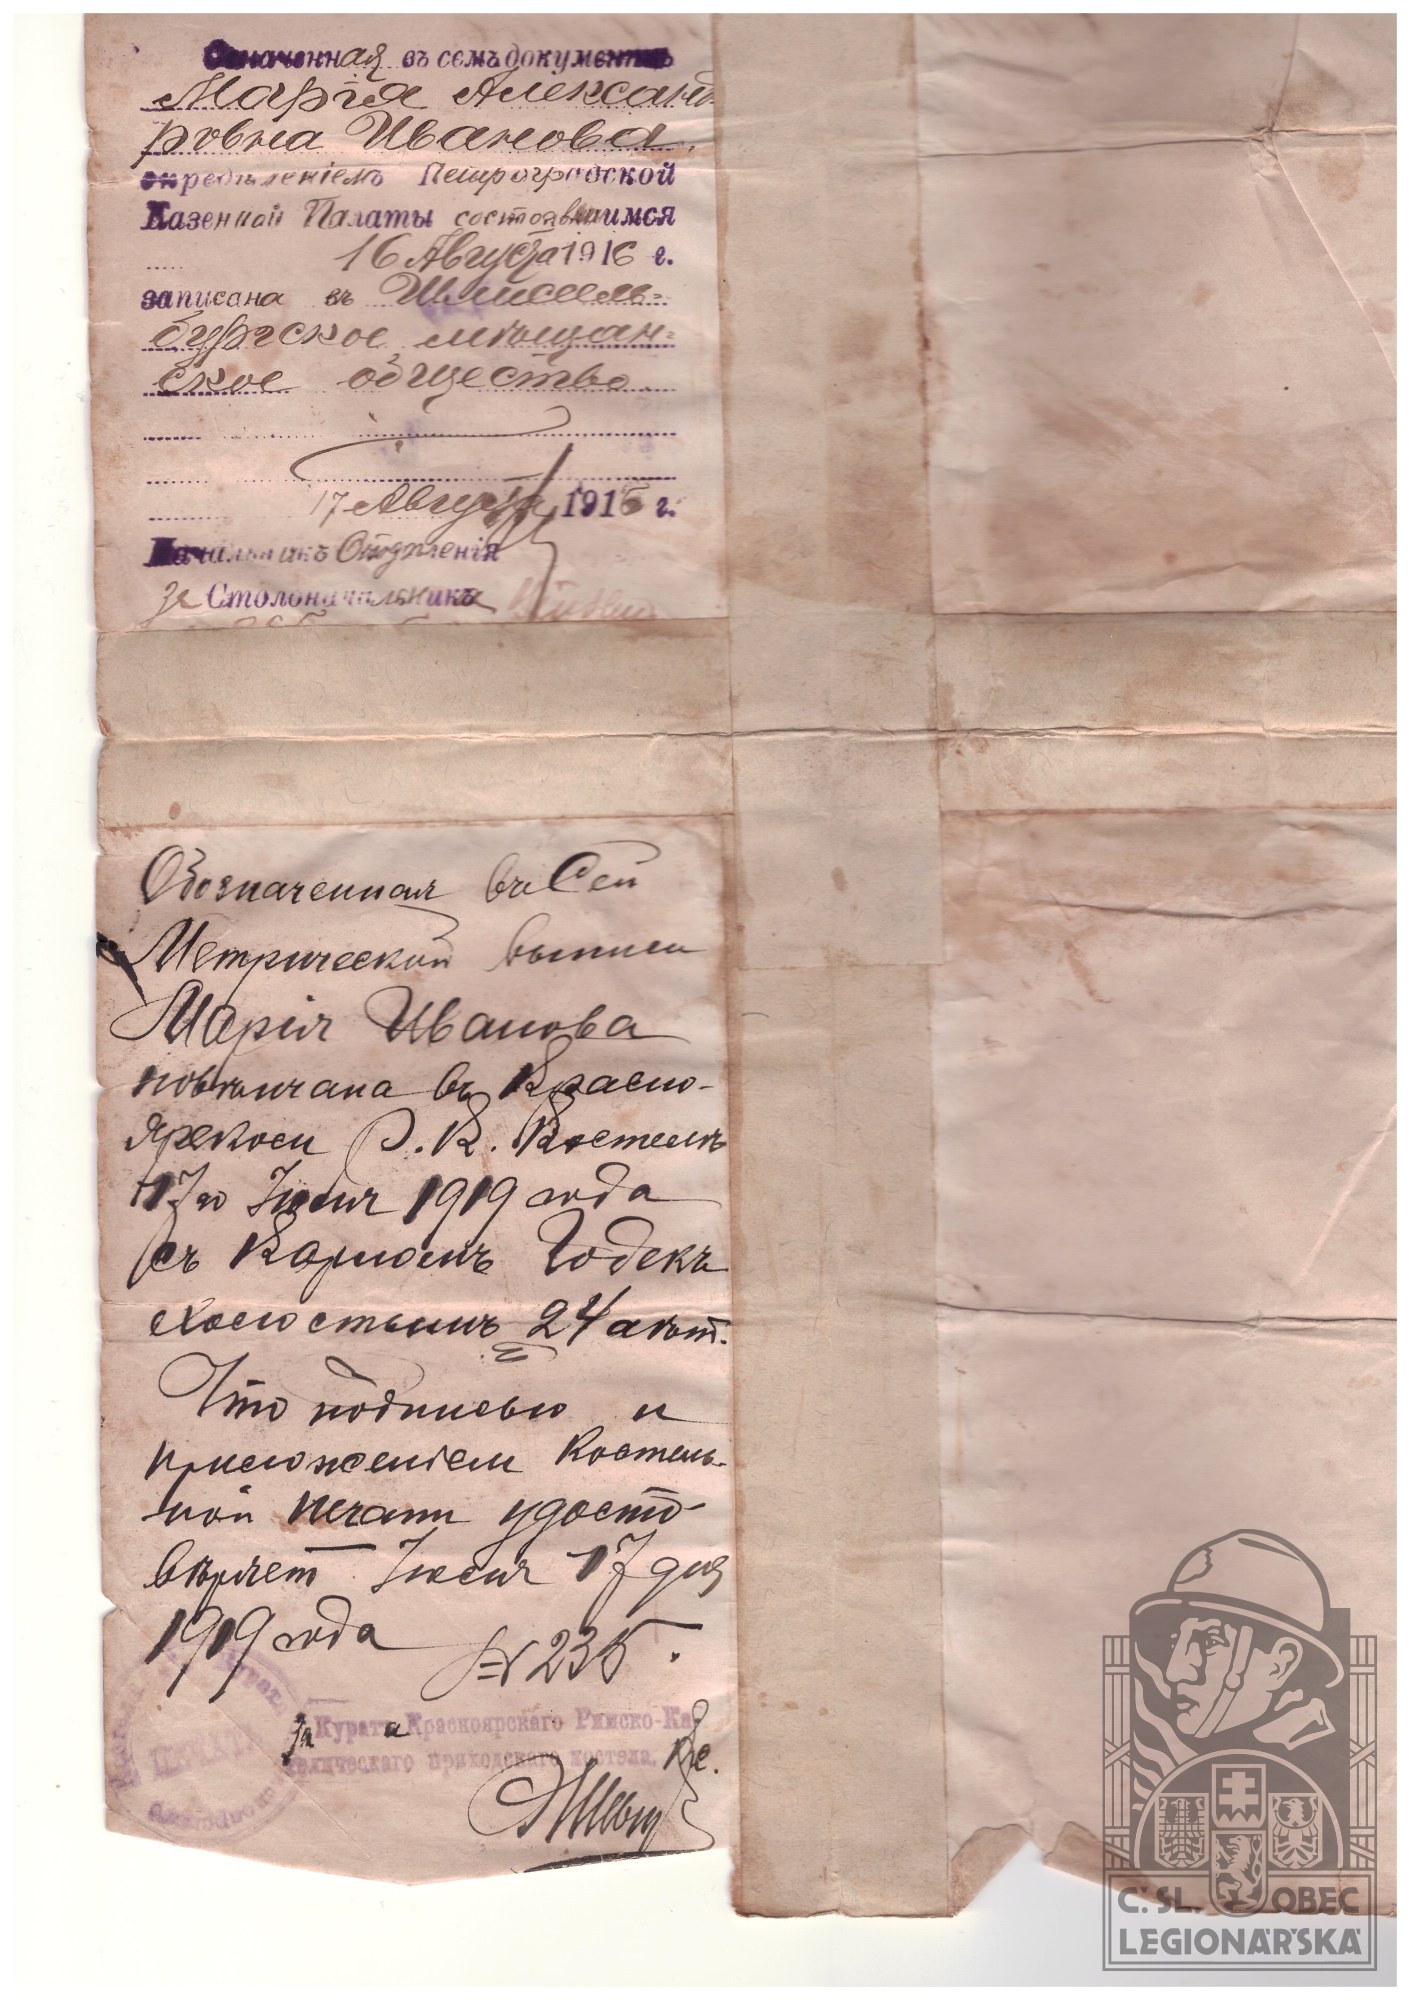 Означенная въ семъ документѣ
Марія Александ-
ровна Иванова,
опредѣленіемъ Петроградской
Казенной Палаты состоявшимся
16 Августа 1916 г.
записана въ Шлиссель-
бургское мѣщан-
ское общество.
17 Августа 1916 г.
Начальникъ Отдѣленія
за Столоначальника
Обозначенная въ Сей
Метрической выписи
Марія Иванова
повѣнчана въ Красно-
ярскомъ Р. К. Костелѣ
17го Іюля 1919 года
съ Карломъ Годекъ
холостымъ 24 лѣт.
Что подписью и
приложеніем Костель-
ной печати удосто-
вѣряет Іюля 17 дня
1919 года № 235.
За Курата Красноярскаго Римско-Ка-
толическаго приходскаго костела. Кс.
ПЕЧАТЬ
Č.SL. OBEC
LEGIONÁŘSKÁ